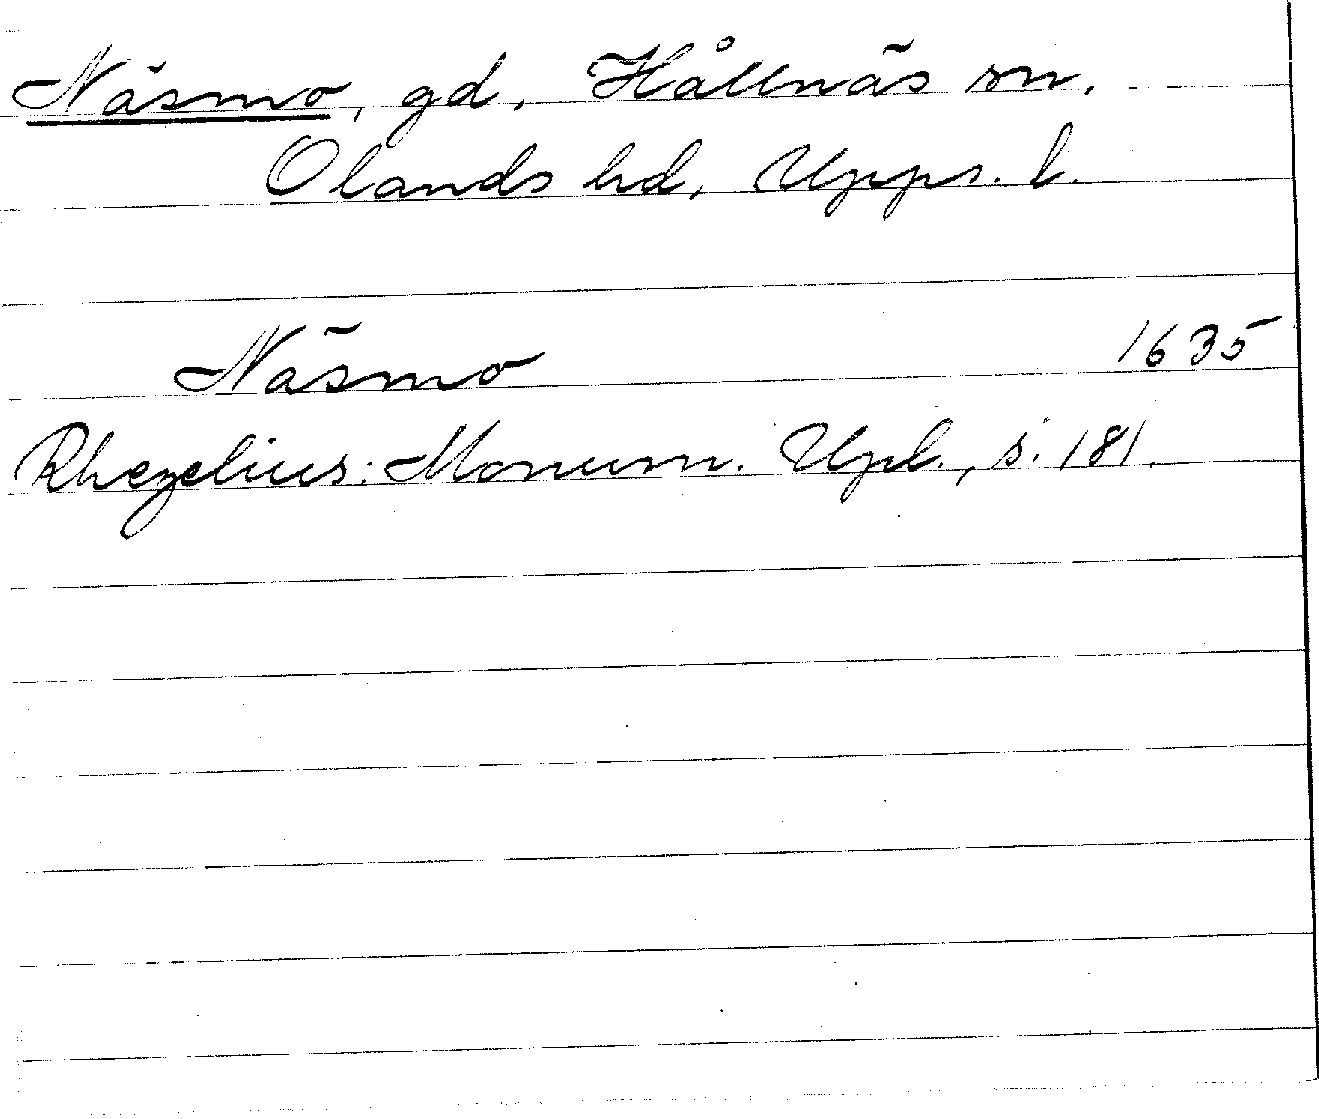 Näsmo, gd, Hållnäs sn.
Olands hd, Upps. l.
Näsmo 1635
Rhezelius: Monum. Upl., s. 181.